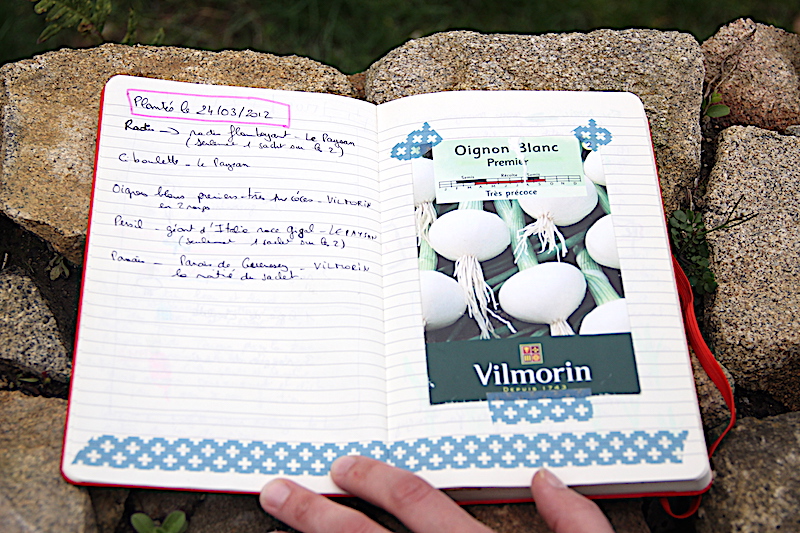 Planté le 24/03/2012
Radis → radis flamboyant - Le Paysan
(seulement 1 sachet sur les 2)
Ciboulette - Le Paysan
Oignons blancs premiers - très précoces - VILMORIN
en 2 rangs
Persil - géant d'Italie race - LE PAYSAN
(seulement 1 sachet sur les 2)
Panais - Panais de Guernesey - VILMORIN
la moitié du sachet.
Oignon Blanc
Premier
Semis Récolte Semis
Très précoce
Vilmorin
DEPUIS 1743